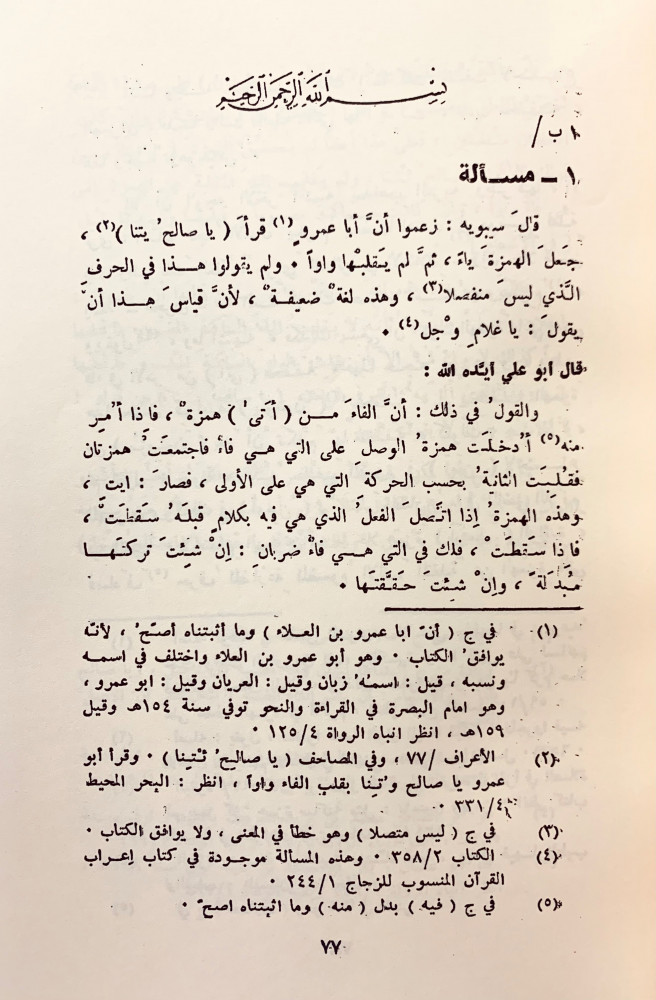 بسم الله الرحمن الرحيم
١ ب /
١ ـ مسـألة
قالَ سيبويه : زعموا أنَّ أبا عمروٍ (١) قرأَ ( يا صالحُ يتنا )(٢) ،
جعَلَ الهمزةَ ياءً ، ثمَّ لم يَقلبْها واواً ٠ ولم يقولوا هـذا في الحرف
الَّذي ليسَ منفصلا(٣) ، وهذه لغةٌ ضعيفةٌ ، لأنَّ قياسَ هـذا أنْ
يقولَ : يا غلامِ وْجل(٤) ٠
قال أبو علي أيّده الله :
والقولُ في ذلك : أنَّ الفاءَ مـن ( أتىٰ ) همزةٌ ، فإذا أُمِر
منه(٥) أُدخِلَت همزةُ الوصلِ على التي هـي فاءٌ فاجتمعَتْ همزتان
فقُلِبَت الثانيةُ بحسب الحركةِ التي هي على الأولى ، فصارَ : ايتِ ،
وهذه الهمزةُ إذا اتَّصلَ الفعلُ الذي هي فيه بكلامٍ قبلَهُ سَقطَتْ ،
فإذا سَقطَتْ ، فلك في التي هـي فاءٌ ضربانِ : إنْ شئِتَ تركتَهـا
مُبدَلةً ، وإنْ شئِتَ حَقَّقتَها ٠
(١) في ج ( أنّ ابا عمرو بن العـلاء ) وما أثبتناه أصـحّ ، لأنّه
يوافقُ الكتاب ٠ وهو أبو عمرو بن العلاء واختلف في اسمه
ونسبه ، قيل : اسمهُ زبان وقيل : العريان وقيل : ابو عمرو ،
وهو امام البصرة في القراءة والنحو توفي سنة ١٥٤هـ وقيل
١٥٩هـ ، انظر انباه الرواة ١٢٥/٤ ٠
(٢) الأعراف /٧٧ ، وفي المصاحف ( يا صالحُ ئْتِنا ) ٠ وقرأ أبو
عمرو يا صالح وْتِنا بقلب الفاء واواً ، انظر : البحر المحيط
٣٣١/٤ ٠
(٣) في ج ( ليس متصلا ) وهو خطأ في المعنى ، ولا يوافق الكتاب ٠
(٤) الكتاب ٣٥٨/٢ ٠ وهذه المسألة موجـودة في كتاب إعـراب
القرآن المنسوب للزجاج ٢٤٤/١ ٠
(٥) في ج ( فيه ) بدل ( منه ) وما اثبتناه اصحّ ٠
٧٧